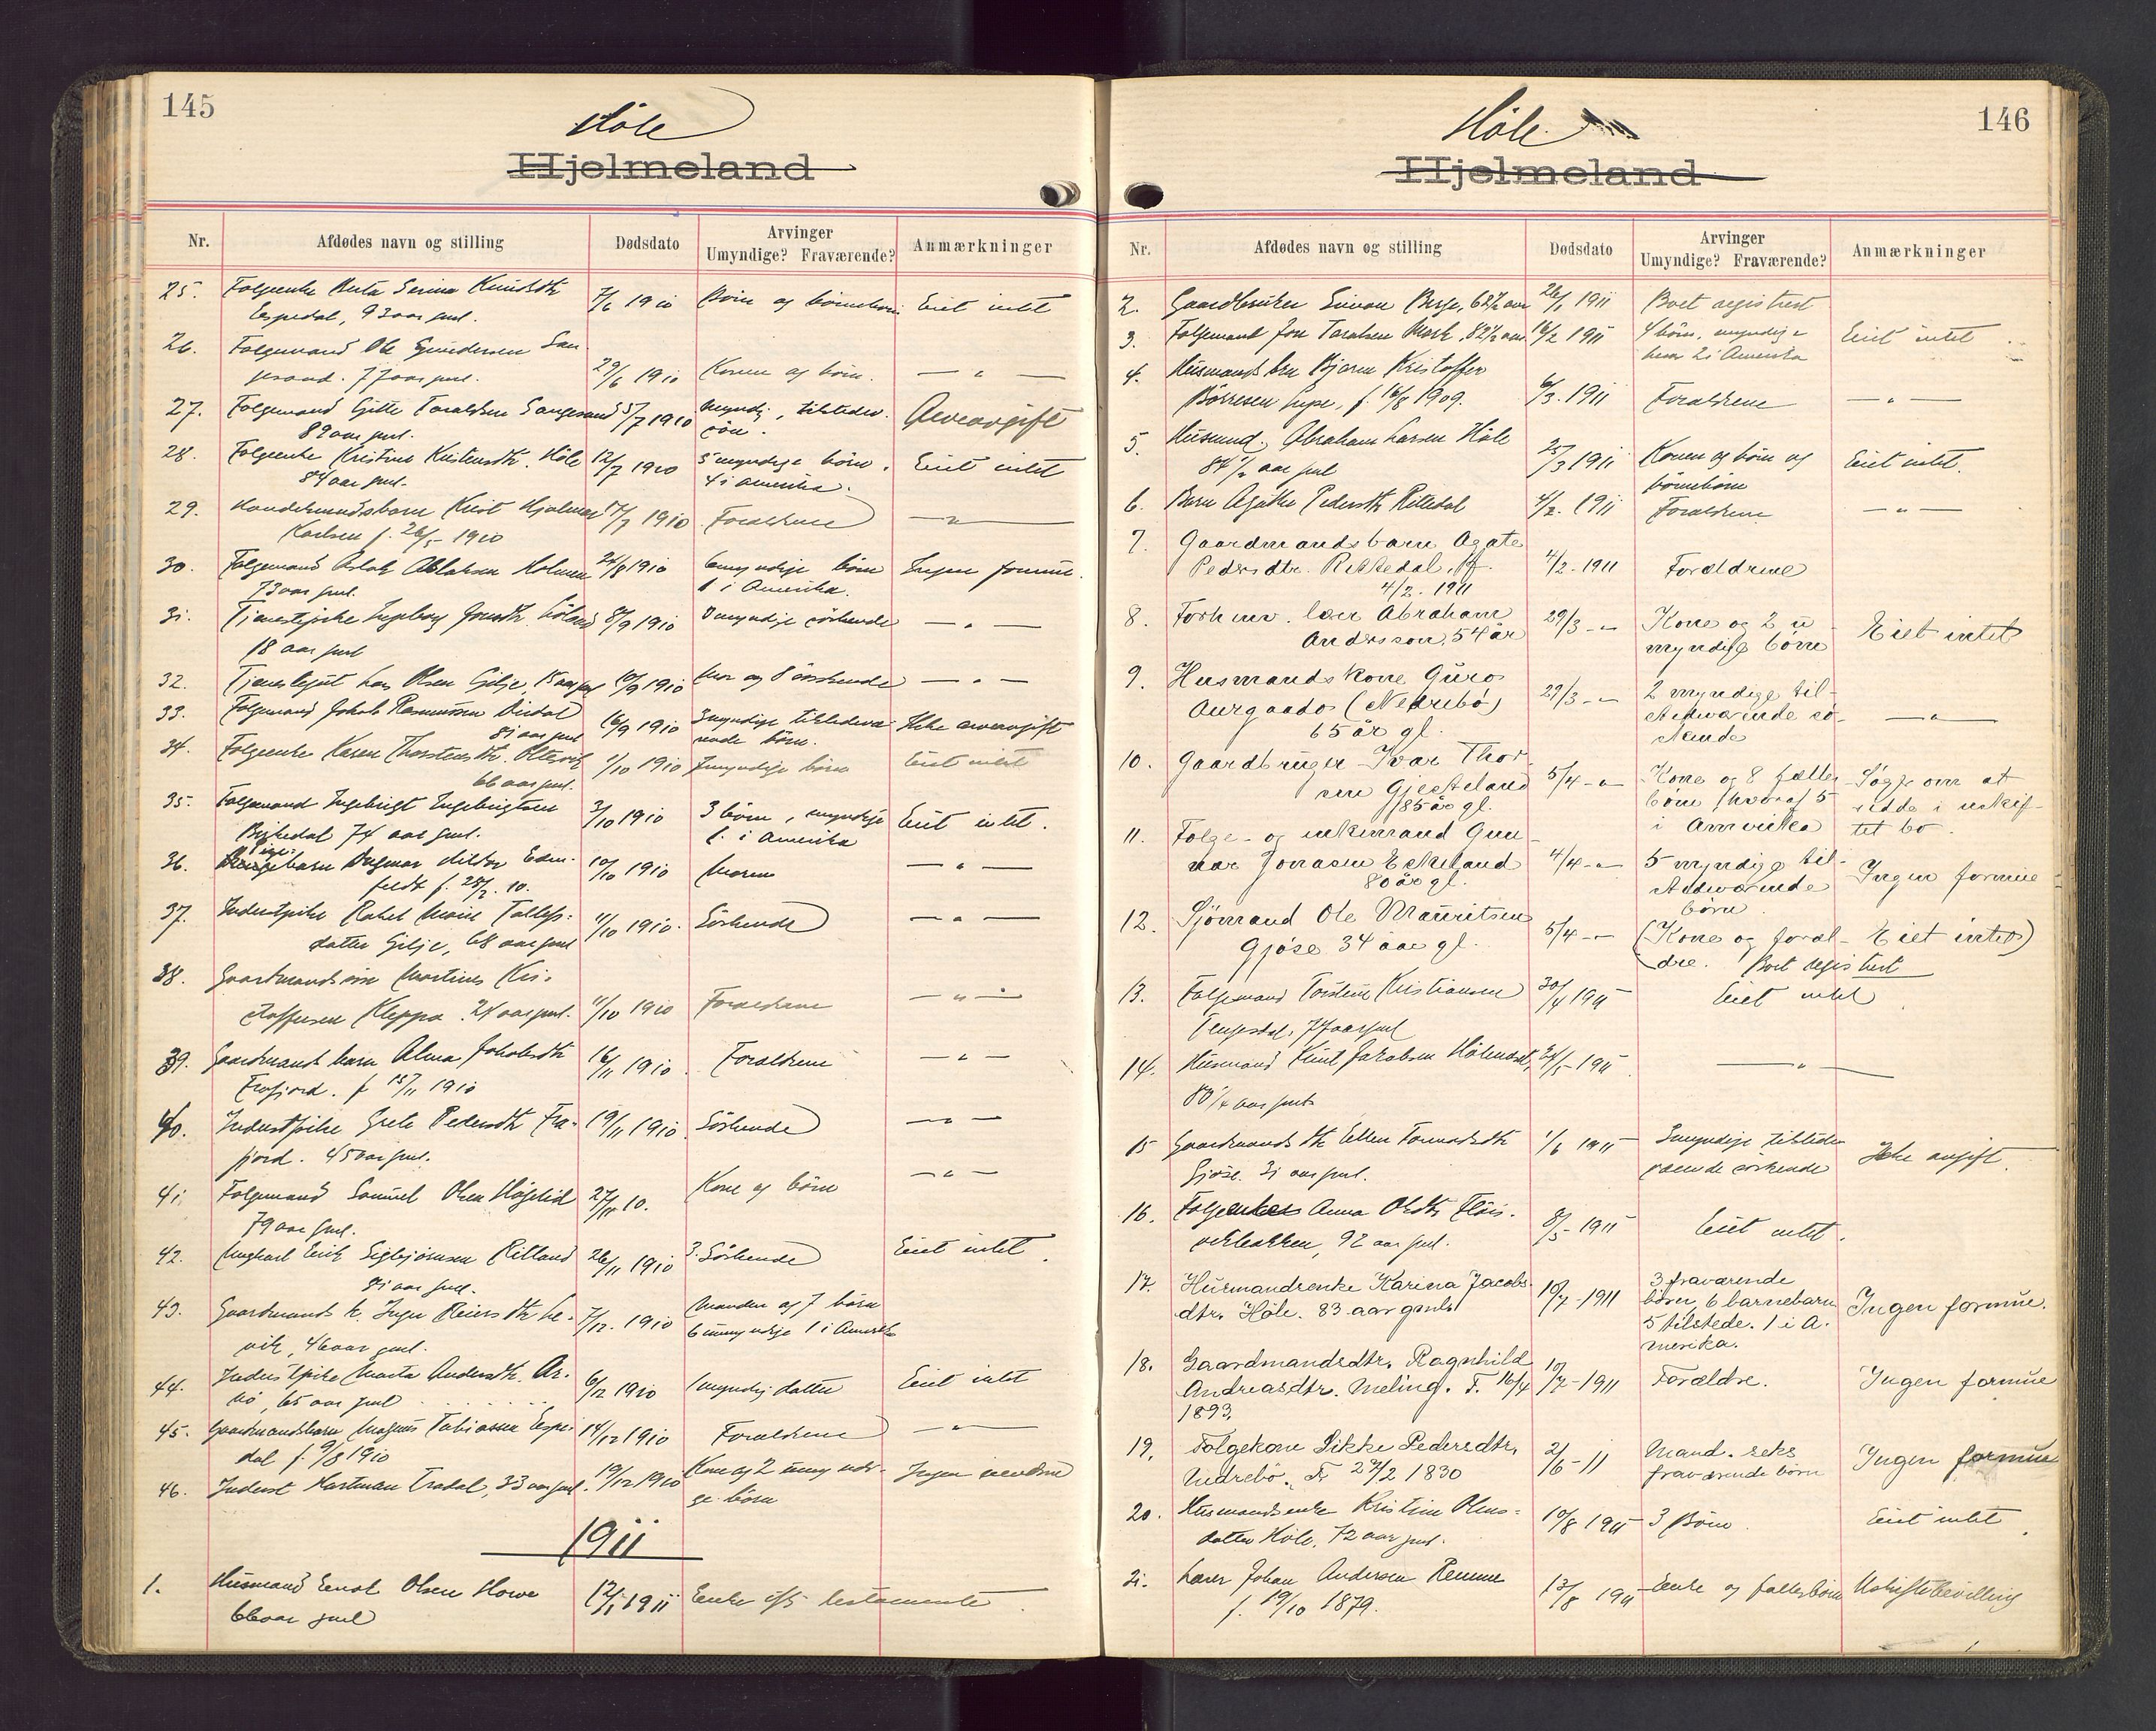 145
Høle
Hjelmeland
Nr.
Afdødes navn og stilling
Dødsdato
Arvinger
Umyndige? Fraværende?
Anmærkninger
25. Folgeenke Berta Serina Knudsdtr 7/6 1910 Børn og børnebørn Eiet intet
Espedal, 93 aar gml.
26. Folgemand Ole Gundersen San-
gesand. 77 aar gml. 29/6 1910 Konen og børn. — " —
27. Folgemand Gitle Taraldsen Sangesand 5/7 1910 Myndig, tilstedev. Arveavgift
89 aar gml. søn.
28. Folgeenke Kristine Kristensdtr. Høle 12/7 1910 5 myndige børn, Eiet intet
84 aar gml. 4 i Amerika.
29. Handelsmandsbarn Knut Hjalmar 17/7 1910 Forældrene — " —
Karlsen f. 26/5 - 1910
30. Folgemand Aslak Aslaksen Holmen 24/8 1910 6 myndige børn Ingen formue.
73 aar gml. 1 i Amerika.
31. Tjenestepike Ingeborg Jonsdtr. 8/9 1910 myndige søskende — " —
18 aar gml
32. Tjenestegut Lars Olsen Gilje, 15 aar gml 10/9 1910 Mor og 8 søskende — " —
33. Folgemand Jakob Rasmussen Dirdal 16/9 1910 3 myndige tilstedevæ- Ikke arveavgift
81 aar gml rende børn.
34. Folgeenke Karen Thorstensdtr. Oltesvik 1/10 1910 7 myndige børn Eiet intet
66 aar gml.
35. Folgemand Ingebrigt Ingebrigtsen 3/10 1910 3 børn, myndige Eiet intet.
Byrkedal 74 aar gml. 1 i Amerika
36. Pigebarn Dagmar Milda Edm- 10/10 1910 Moren — " —
feldt f. 25/2. 10.
37. Inderstpike Rakel Marie Tollefs- 11/10 1910. Søskende — " —
datter Gilje, 68 aar gml
38. Gaardmandssøn Martines Kri-
stoffersen Kleppa. 24 aar gml. 11/10 1910 Forældrene — " —
39. Gaardmandsbarn Alma Jakobsdtr 16/11 1910 Forældrene — " —
Frafjord. f 15/11 1910
40. Inderstpike Grete Pedersdtr Fra- 19/11 1910 Søskende — " —
fjord. 45 aar gml.
41. Folgemand Samuel Olsen Høgelid 27/11 10. Kone og børn — " —
79 aar gml.
42. Ungkarl Erik Sigbjørnsen Ritland 26/11 1910 3 Søskende Eiet intet
81 aar gml.
43. Gaardmands k. Inger Reiersdtr Le- 7/12. 1910 Manden og 7 børn
vik, 46 aar gml. 6 umyndige 1 i Amerika
44. Inderstpike Marta Andersdtr. Ar- 6/12 1910 1 myndig datter Eiet intet
bø, 65 aar gml
45. Gaardmandsbarn Magnus Tobiassen Espe- 14/12 1910 Forældrene — " —
dal f. 9/8 1910
46. Inderst Hartman 33 aar gml. 19/12 1910 Kone og 2 umyndi- Ingen
ge børn
1911
1. Husmand Enok Olsen Howe 12/1 1911 Enke ifg testamente
66 aar gml
146
Høle
Hjelmeland
Nr.
Afdødes navn og stilling
Dødsdato
Arvinger
Umyndige? Fraværende?
Anmærkninger
2. Gaardbruker Simon Berge, 62½ aar 26/1 1911 Boet registrert
3. Folgemand Jon Taralsen Mark, 82½ aar 16/2 1911 4 børn, myndige Eiet intet
hvoraf 2 i Amerika
4. Husmandsbrn Bjarne Kristoffer
Børresen f. 16/8 1909. 6/3. 1911 Forældrene — " —
5. Husmand Abraham Larsen Høle 25/3 1911 Konen og børn og Eiet intet.
84½ aar gml børnebørn
6. Barn Agathe Pedersdtr Rettedal 4/2. 1911 Forældrene — " —
7. Gaardmandsbarn Agate
Pedersdtr. Rettedal, ff. 4/2. 1911 Forældrene
4/2. 1911
8. Forhenv. lær Abraham 29/3 - " Kone og 2 u- Eiet intet
Andersson, 54 år myndige børn
9. Husmandskone Guro
Aurgaado (Nedrebø) 29/3 - " 2 myndige til- — " —
65 år gl. stedværende sø-
skende
10. Gaardbruger Ivar Thor-
sen Gjesteland 5/4 - " Kone og 8 fælles Søgt om at
85 år gl. børn (hvoraf 5 sidde i uskif-
i Amerika tet bo.
11. Folge- og enkemand Gun-
nar Jonasen Eikeland 4/4 - " 5 myndige til- Ingen formue
80 år gl. stedværende
børn
12. Sjømand Ole Mauritsen 5/4 - " (Kone og foræl- Eiet intet)
Gjøse 34 aar gl. dre. Boet registrert
13. Folgemand Torstein Kristiansen 30/4 1911 Eiet intet
Tengesdal, 77 aar gml
14. Husmand Knut Jakobsen 24/5 1911 — " —
80¼ aar gml.
15 Gaardmands dtr Ellen Tormodsdtr 1/6 1911 3 myndige tilstede- Ikke avgift.
Gjøse. 31 aar gml. værende søskende
16. Folgeenke Anna Olsdtr Fløis-
vikbakken, 92 aar gml. 8/5 1911 Eiet intet.
17. Husmandsenke Karina Jacobs- 10/7 - 1911 3 fraværende Ingen formue.
dtr. Høle. 83 aar gml. børn, 6 barnebarn
5 tilstede. 1 i A-
merika.
18. Gaardmandsdtr. Ragnhild
Andreasdtr. Meling. F. 16/4 10/7 - 1911 Forældre. Ingen formue
1893.
19. Folgekone Sikke Pedersdtr. 2/6 - 11 Mand. seks Ingen formue
Nedrebø. F. 27/2 1830 fraværende børn
20. Husmandsenke Kristine Olens- 10/8 1911 3 Børn. Eiet intet
datter Høle, 72 aar gml.
21. Lærer Johan Andersen Remme 13/8 1911 Enke og fællesbørn Uskiftebevilling
f. 19/10 1879.